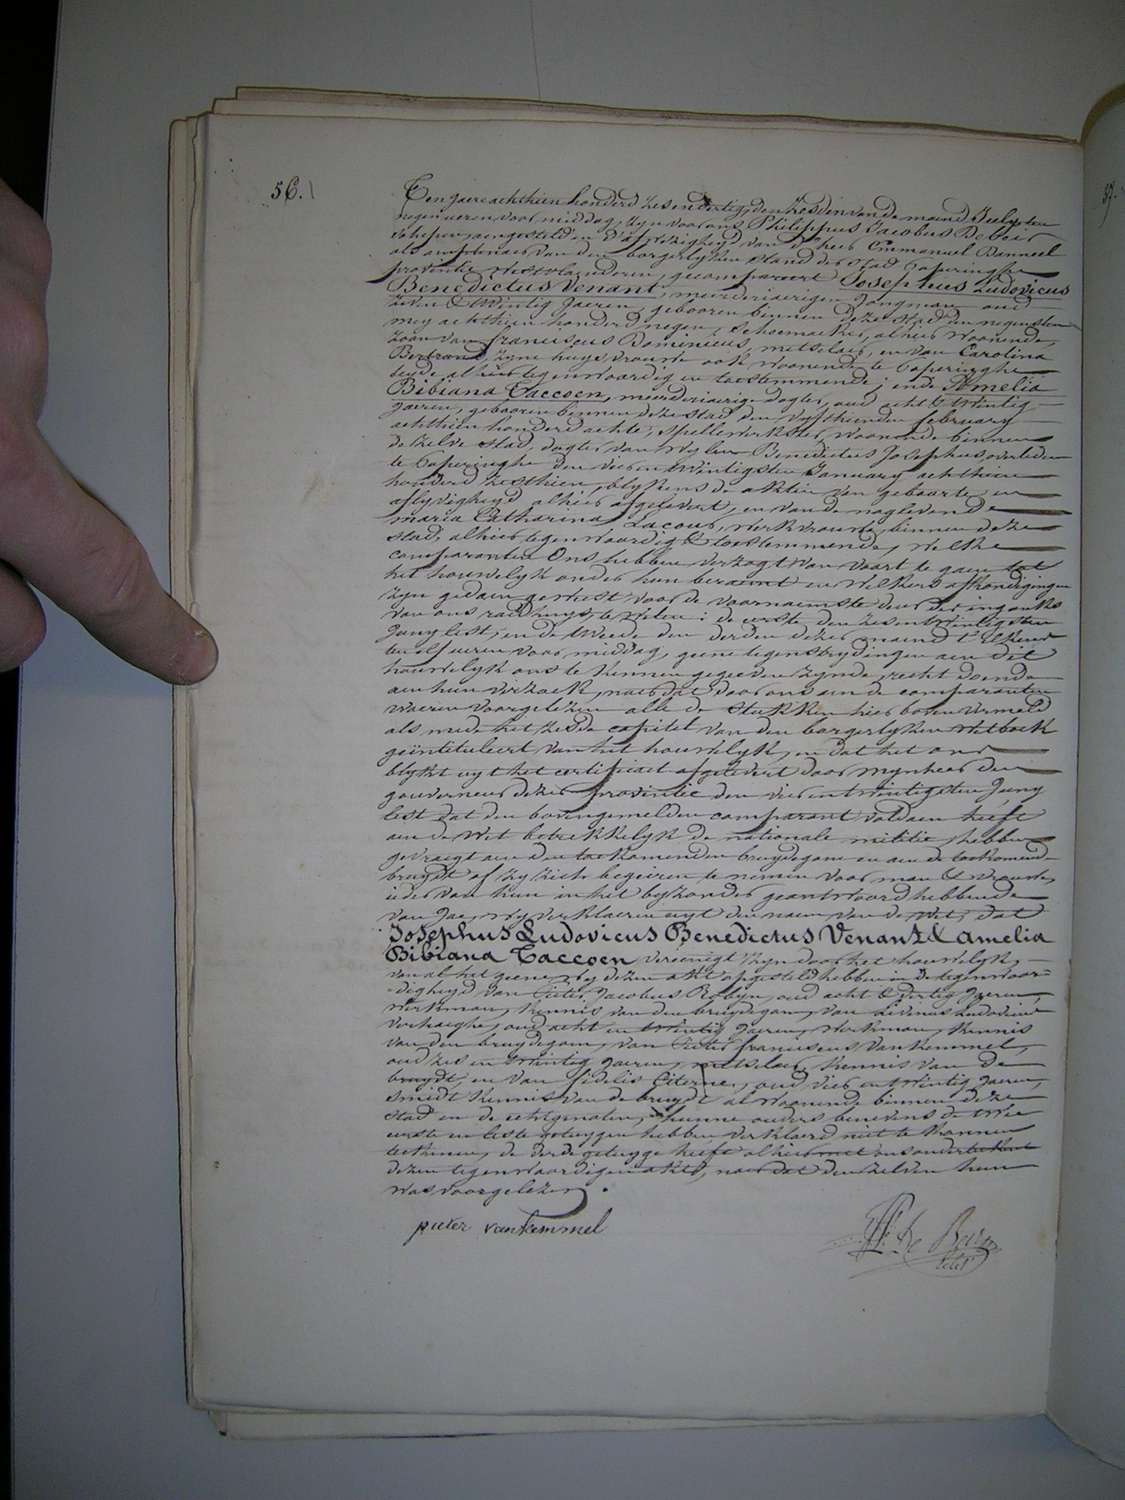 56.
Ten jaere achthien honderd zes en dertig, den zesden van de maend July, ten
negen ueren voor middag, zyn voor ons Philippus Jacobus De
schepen, aengesteld in d'afwezigheyd van d'heer Emmanuel
als amptenaer van den borgerlyken stand der stad Poperinghe
provintie Westvlaenderen, gecompareert Josephus Ludovicus
Benedictus Venant, meerderjaerigen jongman, oud
zeven & twintig jaeren, gebooren binnen deze stad den negensten
mey achthien honderd negen, schoemaeker, alhier woonende,
zoon van franciscus Dominicus, metselaer, en van Carolina
Bertrand, zyne huysvrouwe ook woonende te Poperinghe
beyde alhier tegenwoordig en toestemmende; ende Amelia
Bibiana Taccoen, meerderjaerige dogter, oud acht & twintig
jaeren, gebooren binnen deze stad den vyfthienden february
achthien honderd acht, spellewerkster, woonende binnen
de zelve stad, dogter van wylen Benedictus Josephus overleden
te Poperinghe den vieren twintigsten January achthien
honderd zesthien, blykens de aktens van geboorte en
aflyvigheyd alhier afgelevert, en van de naglevende
maria Catharina Lacour, werkvrouwe binnen deze
stad, alhier tegenwoordig & toestemmende, welke
comparanten ons hebben verzogt van voort te gaen tot
het houwelyk onder hun beraemt en welkers afkondigingen
zyn gedaen geweest voor de voornaemste deur der ingank
van ons raedhuys, te weten: de eerste den zesen twintigsten
Juny lest, en de tweede den derden dezer maend t'elkens
ten elf ueren voor middag, geene tegenstrydingen aen dit
houwelyk ons te kennen gegeeven zynde, recht doende
aen hun verzoek, naer dat door ons aen de comparanten
waeren voorgelezen alle de stukken hier boven vermeld
als mede het zesde capitel van den borgerlyken wetboek
geïntituleert van het houwelyk, en dat het ons
blykt uyt het certificaet afgelevert door mynheer den
gouverneur dezer provintie den vier en twintigsten Juny
lest dat den bovengemelden comparant voldaen heeft
aen de wet betrekkelyk de nationale militie, hebben
gevraegt aen den toekomenden bruydegom en aen de toekomende
bruydt of zy zich begeiren te nemen voor man & vrouwe,
ieder van hun in het byzonder geantwoord hebbende
van Jae, wy verklaeren uyt den naem van de wet, dat
Josephus Ludovicus Benedictus Venant & Amelia
Bibiana Taccoen vereenigt zyn door het houwelyk,
van al het geene wy dezen akt opgesteld hebben in de tegenwoor-
digheyd van Pieter Jacobus Robyn, oud acht & dertig jaeren,
werkman, kennis van den bruydegom, van Livinus Ludovicus
Verhaeghe, oud acht en twintig jaeren, werkman, kennis
van den bruydegom, van Pieter franciscus Vankemmel,
oud zes en twintig jaeren, metselaer, kennis van de
bruydt, en van fidelis Citerne, oud vier en twintig jaeren,
smidt kennis van de bruydt al woonende binnen deze
stad en de echtgenoten, hunne ouders benevens de twee
eerste en leste getuygen hebben verklaerd niet te konnen
teekenen, de derde getuyge heeft alhier met ons onderteekent
dezen tegenwoordigen akt, naer dat den zelven hun
was voorgelezen.
pieter vankemmel